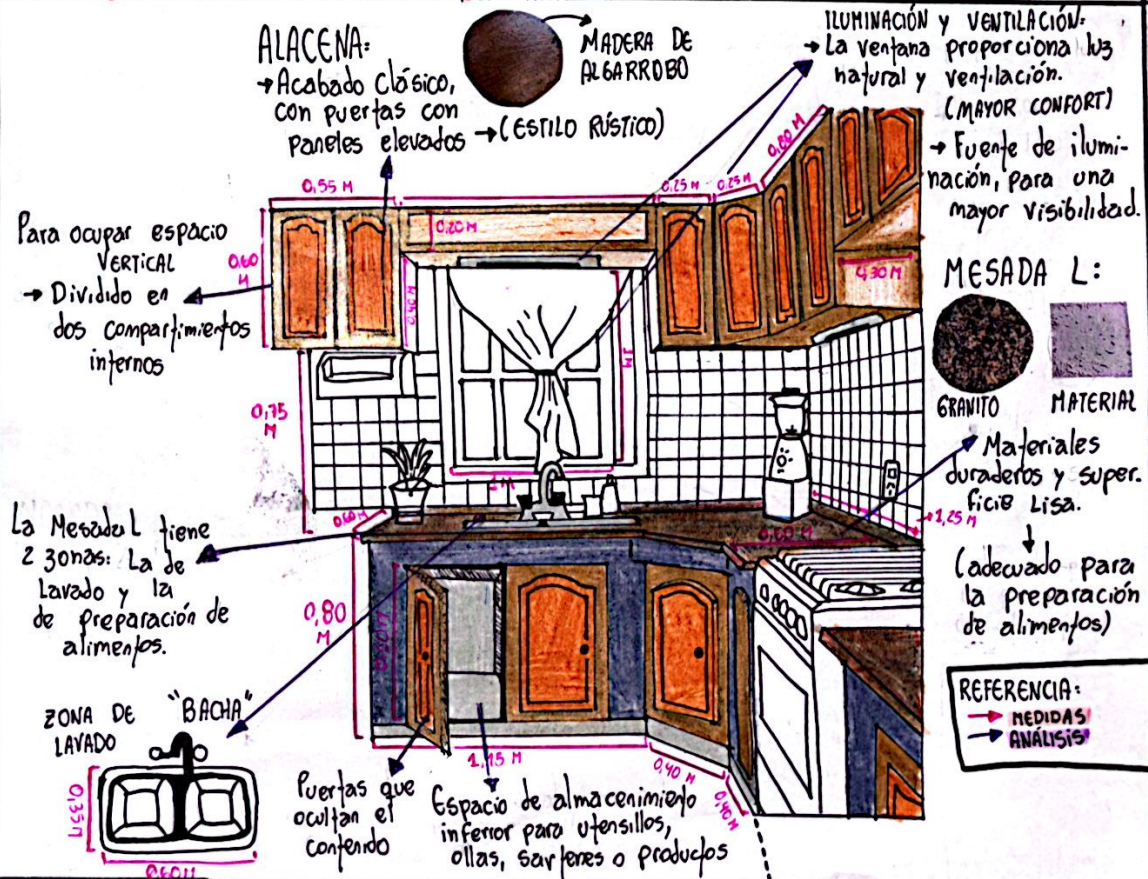 ALACENA:
→ Acabado clásico,
con puertas con
paneles elevados → (ESTILO RÚSTICO)
MADERA DE
ALGARROBO
ILUMINACIÓN y VENTILACIÓN:
→ La ventana proporciona luz
natural y ventilación.
(MAYOR CONFORT)
→ Fuente de ilumi-
nación, para una
mayor visibilidad.
Para ocupar espacio
VERTICAL
→ Dividido en
dos compartimientos
internos
0,55 M
0,25 M
0,25 M
0,80 M
0,20 M
0,60
M
0,40 M
1,30 M
1M
1M
0,75
M
MESADA L:
GRANITO
MATERIAL
Materiales
duraderos y super.
ficie Lisa.
(adecuado para
la preparación
de alimentos)
La Mesada L tiene
2 zonas: La de
Lavado y la
de preparación de
alimentos.
0,60 M
0,60 M
1,25 M
0,80
M
1,15 M
0,40 M
0,40 M
ZONA DE "BACHA"
LAVADO
0,35M
0,60M
Puertas que
ocultan el
contenido
Espacio de almacenimiento
inferior para utensillos,
ollas, sartenes o productos
REFERENCIA:
→ MEDIDAS
→ ANÁLISIS